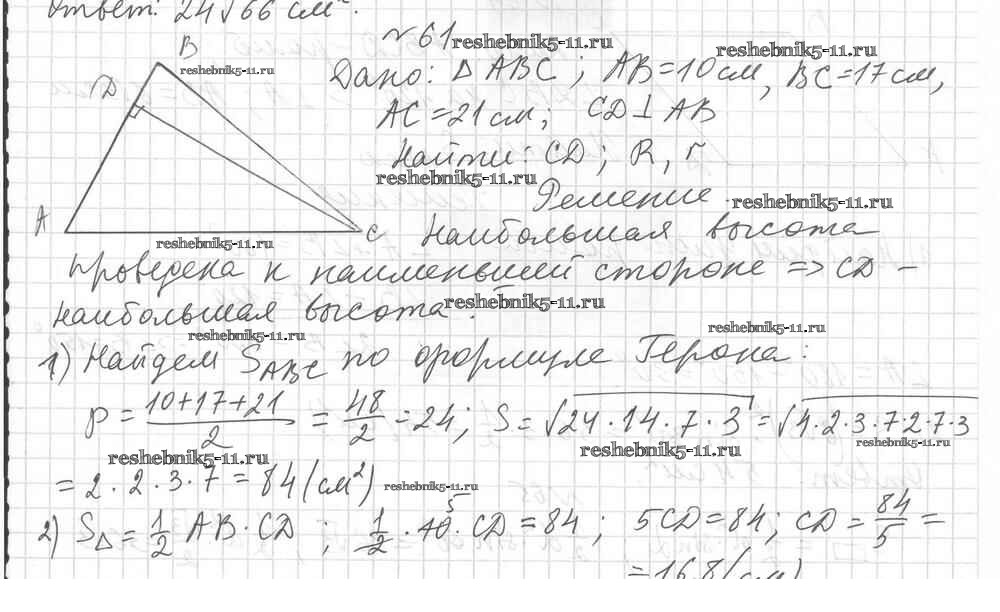 Ответ: 24√66 см².
№61
reshebnik5-11.ru
reshebnik5-11.ru
B
reshebnik5-11.ru
D
Дано: △ABC; AB=10см, BC=17см,
AC=21см; CD⊥AB
Найти: CD; R, r
reshebnik5-11.ru
Решение
reshebnik5-11.ru
A
C
reshebnik5-11.ru
Наибольшая высота
проведена к наименьшей стороне => CD –
наибольшая высота.
reshebnik5-11.ru
reshebnik5-11.ru
reshebnik5-11.ru
1) Найдем S_ABC по формуле Герона:
p = (10+17+21)/2 = 48/2 = 24; S = √24·14·7·3 = √4·2·3·7·2·7·3
reshebnik5-11.ru
reshebnik5-11.ru
reshebnik5-11.ru
= 2·2·3·7 = 84 (см²)
reshebnik5-11.ru
2) S△ = 1/2 AB·CD ; 1/2 · 10 5 · CD = 84 ; 5CD = 84; CD = 84/5 =
= 16,8 (см)